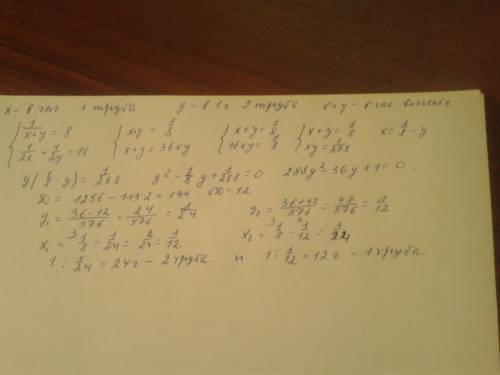 x - в час 1 труба y - в 1 ч 2 труба x+y - в час вместе
{ 1/(x+y) = 8 { x+y = 1/8 { x+y = 1/8 { x+y = 1/8 x = 1/8 - y
{ 1/2x + 1/2y = 18 { x+y = 36xy { 36xy = 1/8 { xy = 1/288
y(1/8 - y) = 1/288 y² - 1/8 y + 1/288 = 0 288y² - 36y + 1 = 0
D = 1296 - 1152 = 144 √D = 12
y₁ = (36-12)/576 = 24/576 = 1/24 y₂ = (36+12)/576 = 48/576 = 1/12
x₁ = 1/8 - 1/24 = 2/24 = 1/12 x₂ = 1/8 - 1/12 = 1/24
1 : 1/24 = 24 ч - 2 труба и 1 : 1/12 = 12 ч - 1 труба